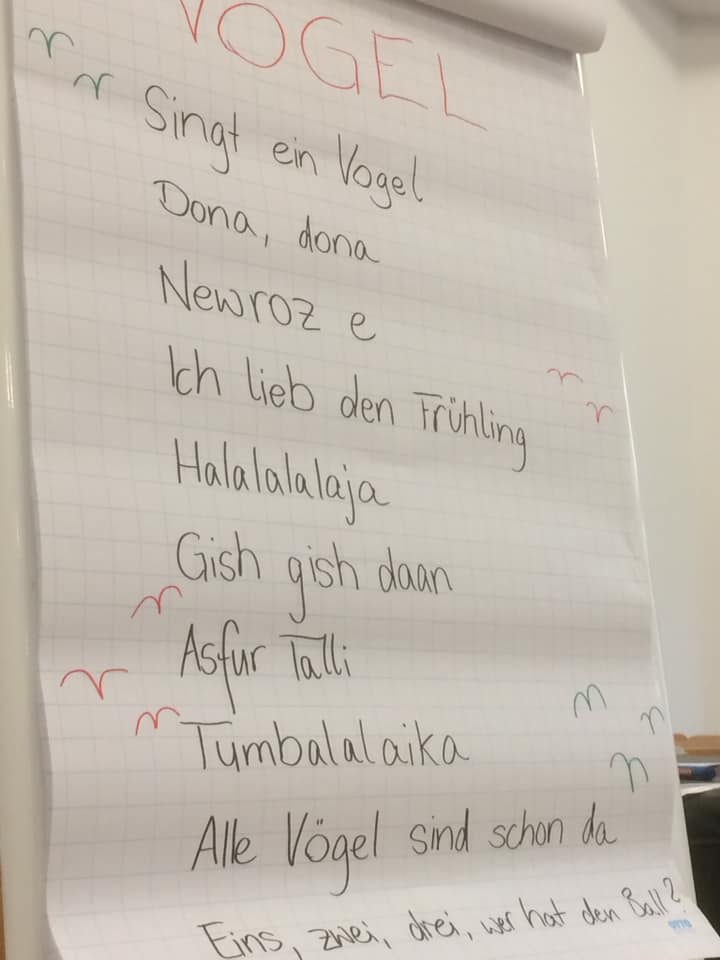 VOGEL
Singt ein Vogel
Dona, dona
Newroz e
Ich lieb den Frühling
Halalalalaja
Gish gish daan
Asfur Talli
Tumbalalaika
Alle Vögel sind schon da
Eins, zwei, drei, wer hat den Ball?